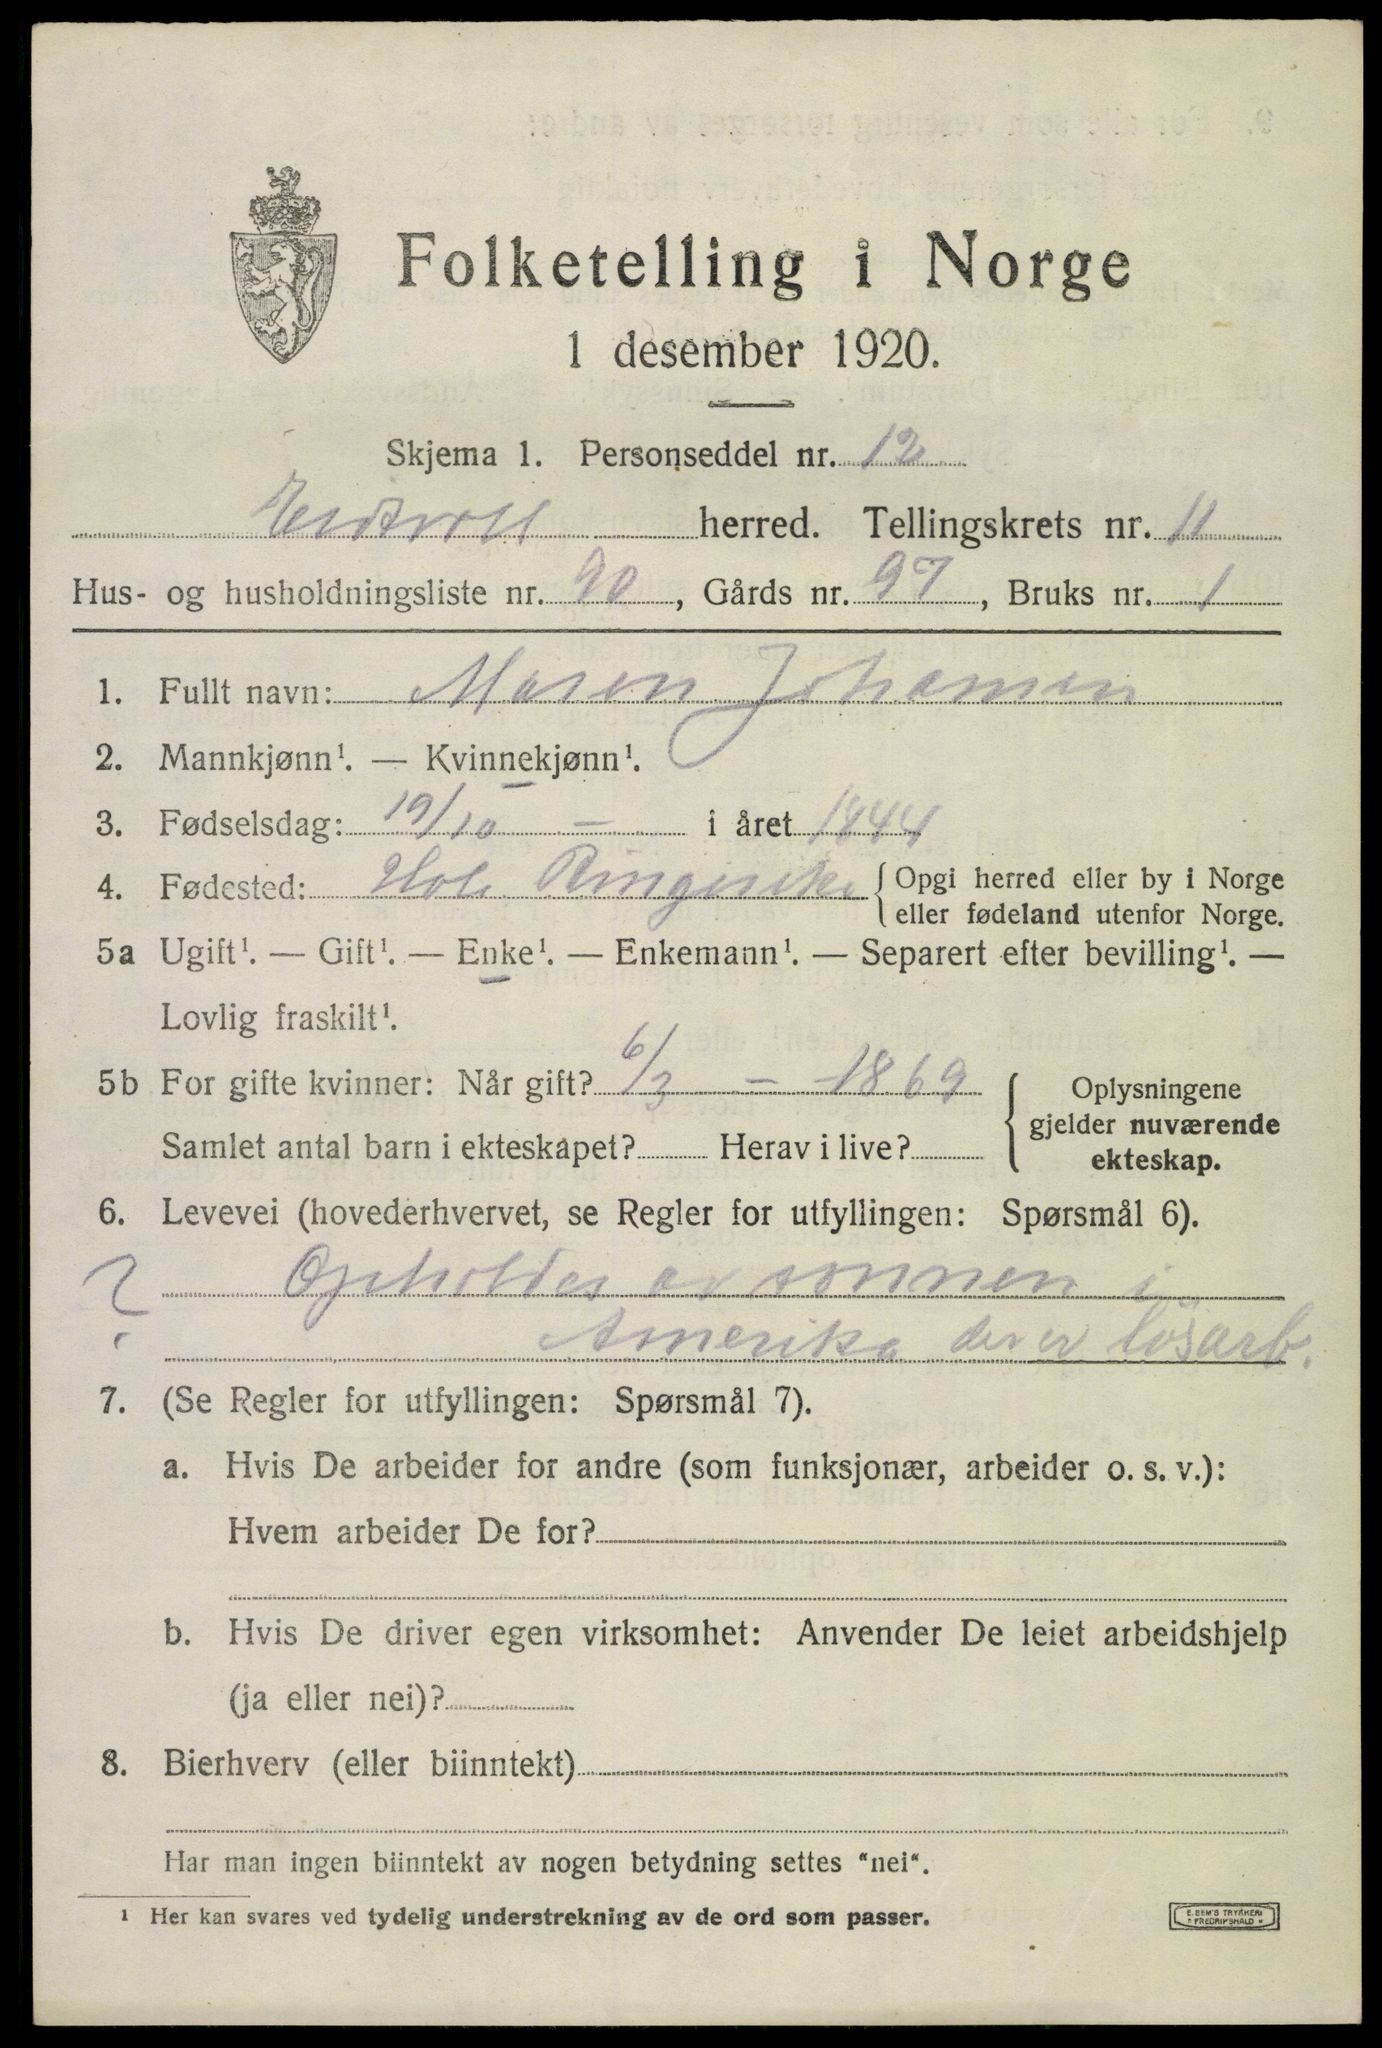 Folketelling i Norge
1 desember 1920.
Skjema 1. Personseddel nr. 12
Eidsvoll herred. Tellingskrets nr. 11
Hus- og husholdningsliste nr. 90, Gårds nr. 97, Bruks nr. 1
1. Fullt navn: Maren Johansen
2. Mannkjønn¹. — Kvinnekjønn¹.
3. Fødselsdag: 19/10 – i året 1844
4. Fødested: Hole Ringerike {Opgi herred eller by i Norge
eller fødeland utenfor Norge.
5a Ugift¹. — Gift¹. — Enke¹. — Enkemann¹. — Separert efter bevilling¹. —
Lovlig fraskilt¹.
5b For gifte kvinner: Når gift? 6/3 – – 1869
Samlet antal barn i ekteskapet? Herav i live?
{Oplysningene
gjelder nuværende
ekteskap.
6. Levevei (hovederhvervet, se Regler for utfyllingen: Spørsmål 6).
? Opholdes av sønnen i
Amerika der er løsarb.
7. (Se Regler for utfyllingen: Spørsmål 7).
a. Hvis De arbeider for andre (som funksjonær, arbeider o. s. v.):
Hvem arbeider De for?
b. Hvis De driver egen virksomhet: Anvender De leiet arbeidshjelp
(ja eller nei)?
8. Bierhverv (eller biinntekt)
Har man ingen biinntekt av nogen betydning settes "nei".
¹ Her kan svares ved tydelig understrekning av de ord som passer.
E. SEM'S TRYKKERI
FREDRIKSHALD